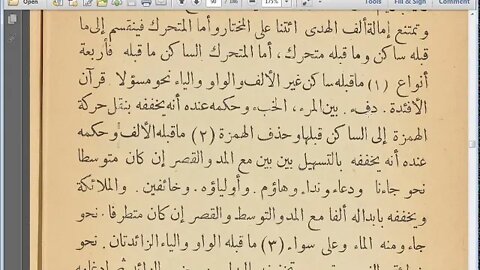 Open
50
/ 186
175%
Tools
Sign
Comment
وتمتنع إمالة ألف الهدى ائتنا على المختار وأما المتحرك فينقسم إلى ما
قبله ساكن وما قبله متحرك، أما المتحرك الساكن ما قبله فأربعة
أنواع (١) ما قبله ساكن غير الألف والواو والياء نحو مسؤلا قرآن
الأفئدة. دفء. بين المرء، الخبء وحكمه عنده أنه يخففه بنقل حركة
الهمزة إلى الساكن قبلها وحذف الهمزة (٢) ما قبله الألف وحكمه
عنده أنه يخففه بالتسهيل بين بين مع المد والقصر إن كان متوسطا
نحو جاءنا ودعاء ونداء وهاؤم. وأولياؤه. وخائفين. والملائكة
ويخففه بابداله ألفا مع المد والتوسط والقصر إن كان متطرفا. نحو
جاء ومنه الماء وعلى سواء (٣) ما قبله الواو والياء الزائدتان. نحو